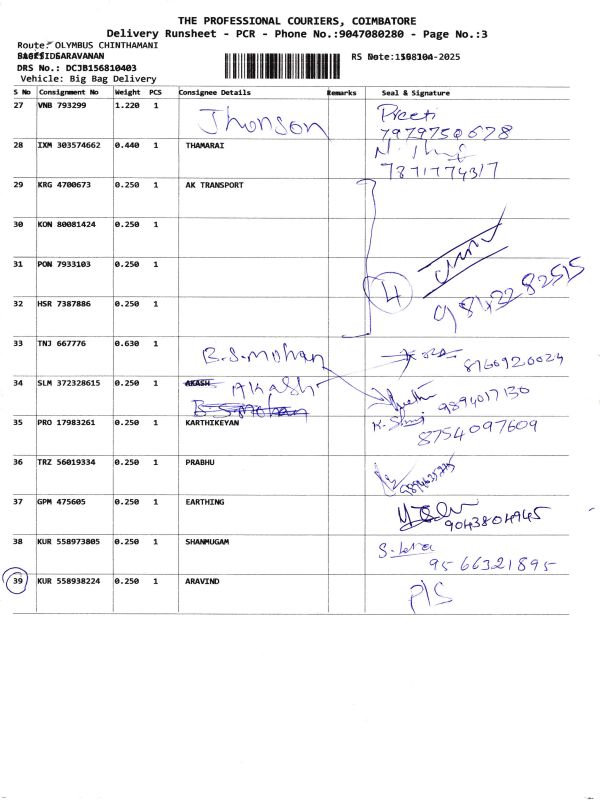 THE PROFESSIONAL COURIERS, COIMBATORE
Delivery Runsheet - PCR - Phone No.:9047080280 - Page No.:3
Route: OLYMBUS CHINTHAMANI
SARAVANAN
DRS No.: DCJB156810403
Vehicle: Big Bag Delivery
RS Date: -2025
S No Consignment No Weight PCS Consignee Details Remarks Seal & Signature
27 VNB 793299 1.220 1 Jhonson Preeti
7979750678
28 IXM 303574662 0.440 1 THAMARAI
7871774317
29 KRG 4700673 0.250 1 AK TRANSPORT
30 KON 80081424 0.250 1
31 PON 7933103 0.250 1 4
32 HSR 7387886 0.250 1
33 TNJ 667776 0.630 1 B.S.mohan 8760920024
34 SLM 372328615 0.250 1 AKASH Akash 9894017130
B.S.mohan
35 PRO 17983261 0.250 1 KARTHIKEYAN
8754097609
36 TRZ 56019334 0.250 1 PRABHU
37 GPM 475605 0.250 1 EARTHING
9043804945
38 KUR 558973805 0.250 1 SHANMUGAM
9566321895
39 KUR 558938224 0.250 1 ARAVIND P/S